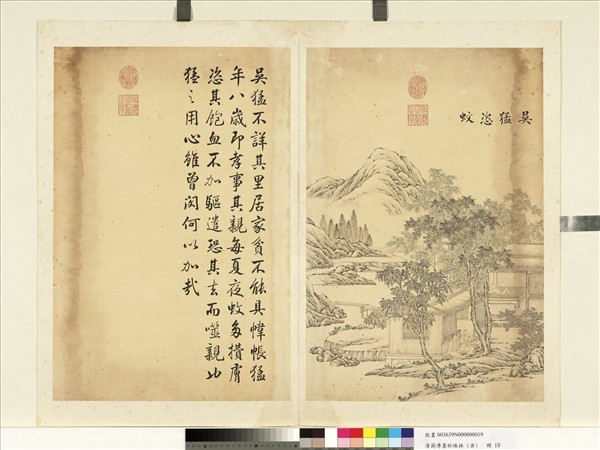 吳猛恣蚊
吳猛不詳其里居家貧不能具幃帳猛
年八歲即孝事其親每夏夜蚊多攢膚
恣其飽血不加驅遣恐其去而噬親也
猛之用心雖曾閔何以加哉
故畫 003639N000000019
墨妙珠林 冊 19